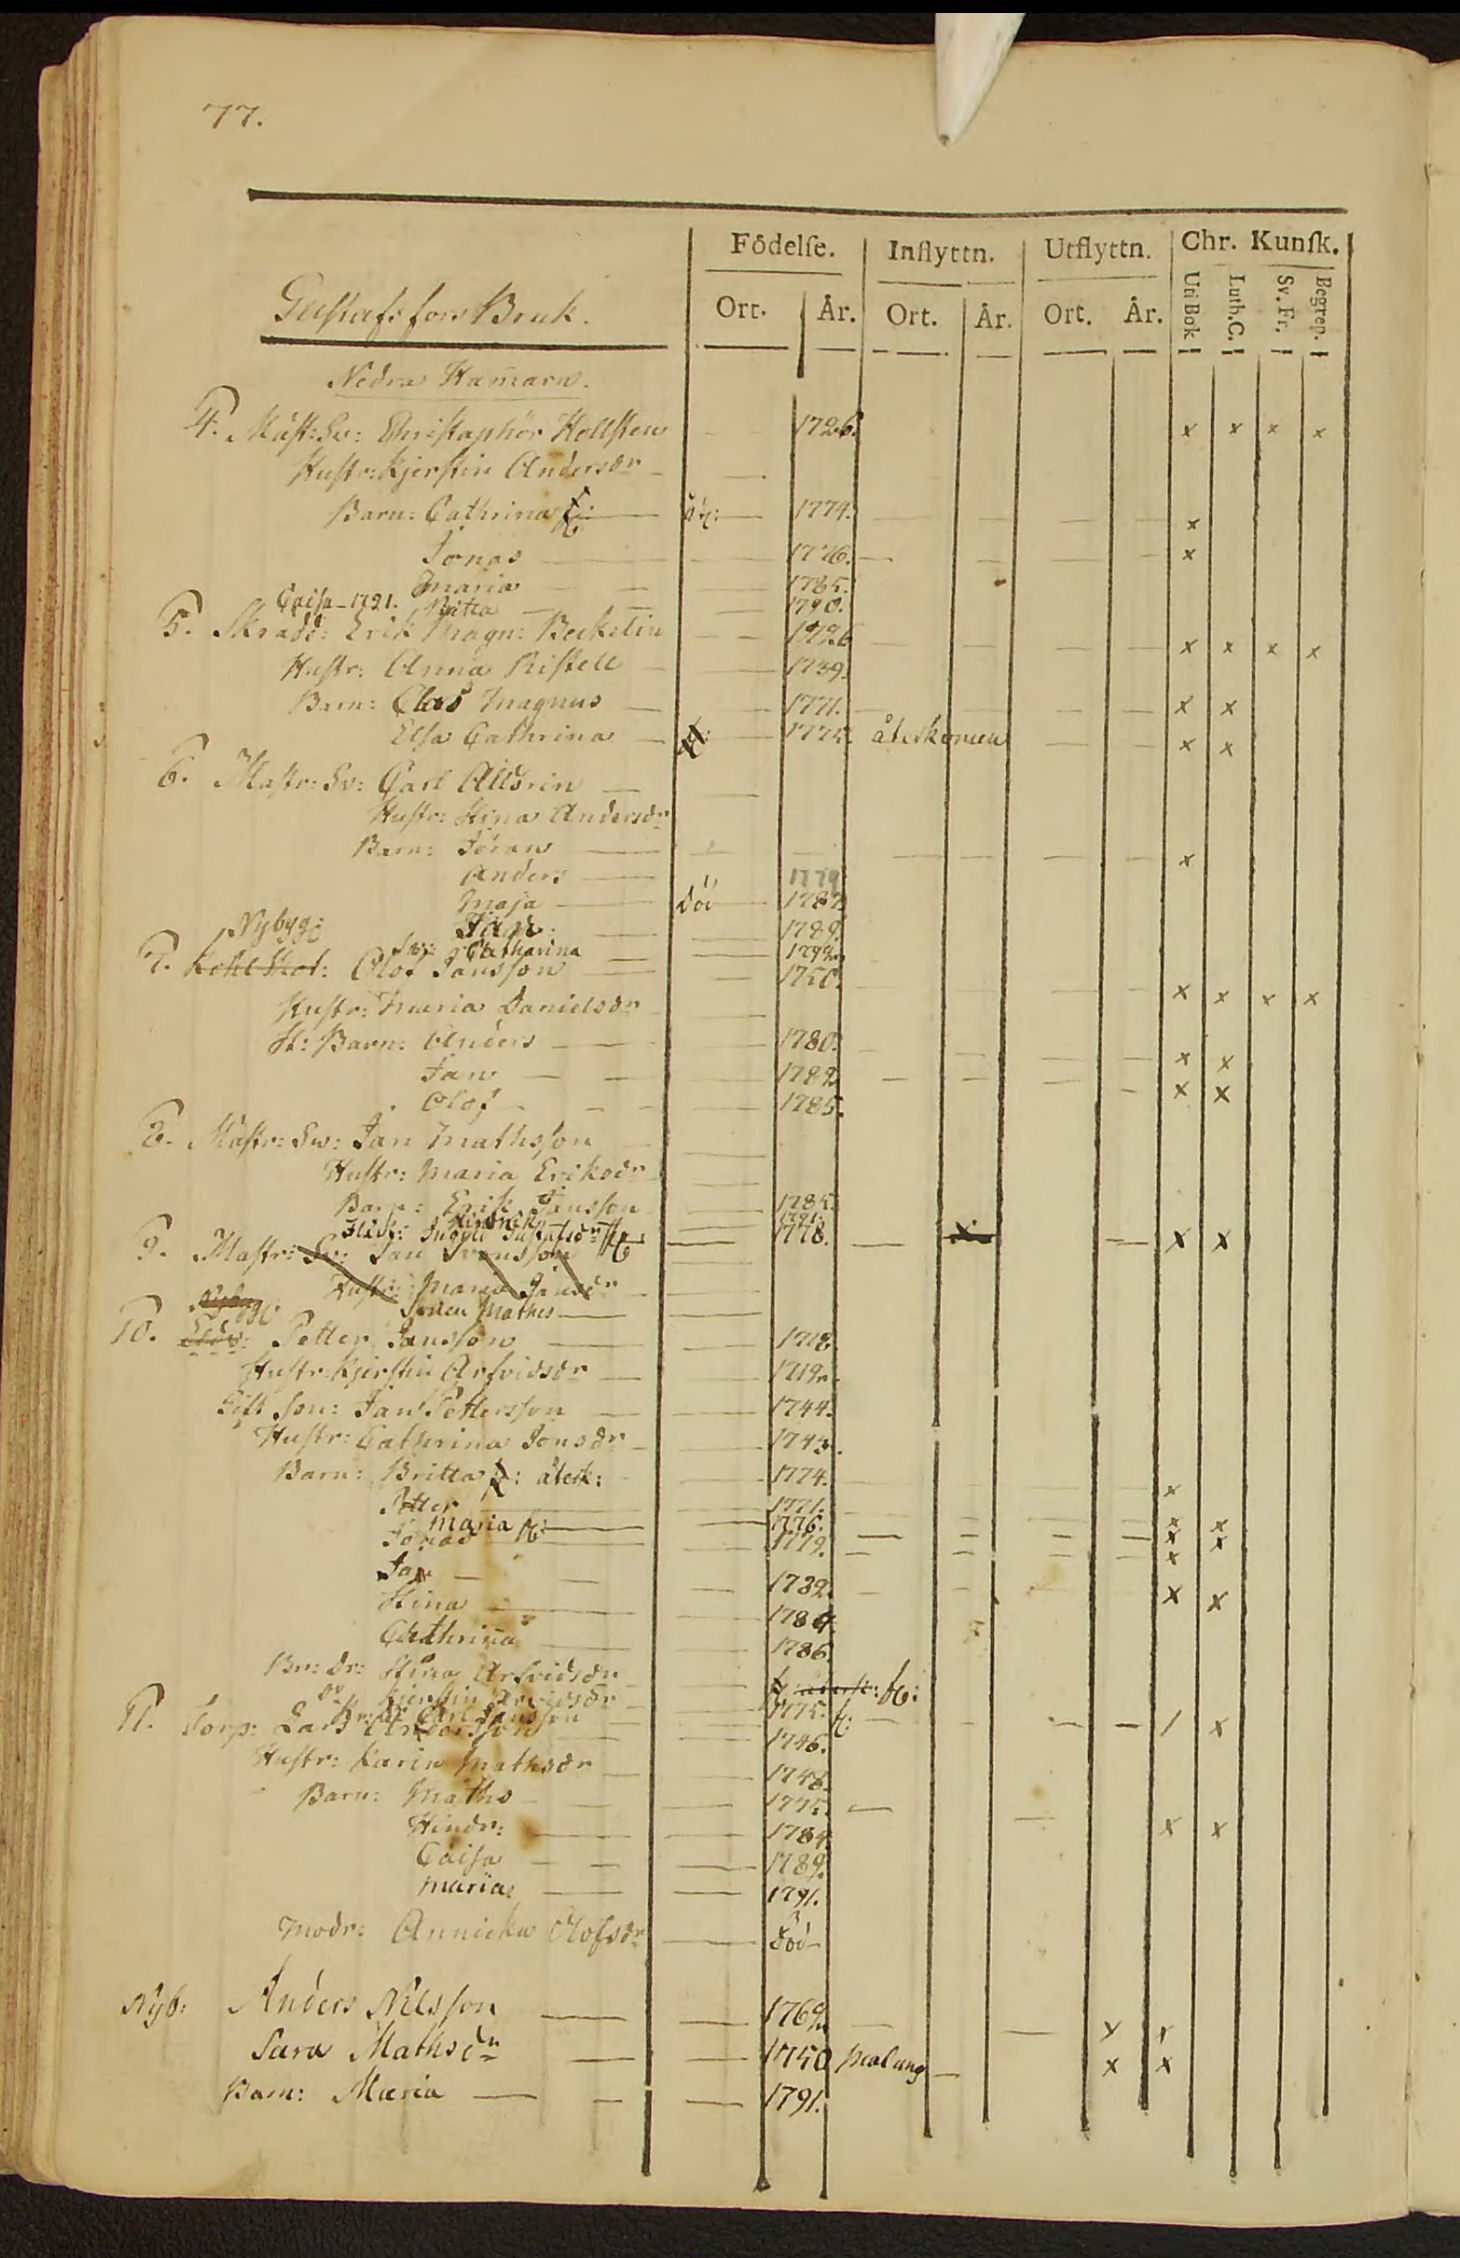 77.
Födelse. Inflyttn. Utflyttn. Chr. Kunsk.
Gustafsfors Bruk. Ort. År. Ort. År. Ort. År. Uti Bok Luth.C. Sv. Fr. Begrep.
Nedra Hamarn.
4. Mäst: Sv: Christophör Hollsten 1726. x x x x
Hustr: Kjerstin Andersdr
Barn: Cathrina 1774. x
Jonas 1776. x
Maria 1785.
Caisa - 1791. Britta 1790.
5. Skrädd: Erik Magn: Beckelin 1726 x x x x
Hustr: Anna Ristell 1739.
Barn: Clas Magnus 1771. x x
Elsa Cathrina 1775. återkommen x x
6. Mästr: Sv: Carl Alldrin
Hustr: Stina Andersdr
Barn: Jöran x
Anders 1779
Maja död 1787
Jan 1789.
Nybyg: Catharina 1792.
7. Kohl Olof Jansson 1750. x x x x
Hustr: Maria Danielsdr
St: Barn: Anders 1780. x x
Jan 1782 x x
Olof 1785.
8. Mästr: Sw: Jan Mathsson
Hustr: Maria Eriksdr
Barn: Erik Jansson 1785.
Hindrik 1791.
1778. x x
9. Mästr: Sv: Jan Svensson
Hustr: Maria Jansdr
Sonen Mathes
10. Petter Jansson 1718
Hustr: Kjerstin Arfvidsdr 1719.
Gift Son: Jan Pettersson 1744.
Hustr: Cathrina Jonsdr 1745.
Barn: Britta återk: 1774. x
Petter 1771. x x
Maria 1776. x x
Jonas 1779. x
Jan 1782. x x
Stina 1784
Cathrina 1786.
Br: dr: Stina Arfvidsdr
Kjerstin Arvidsdr 1775. / x
Carl Jansson
11. Torp: Lars Andersson 1746.
Hustr: Karin Mathsdr 1748.
Barn: Maths 1775.
Hindr: 1784. x x
Caisa 1789.
Maria 1791.
Modr: Annicka Olofsdr död
Nyb: Anders Nilsson 1769. x x
Sara Mathsdr 1750 x x
Barn: Maria 1791.